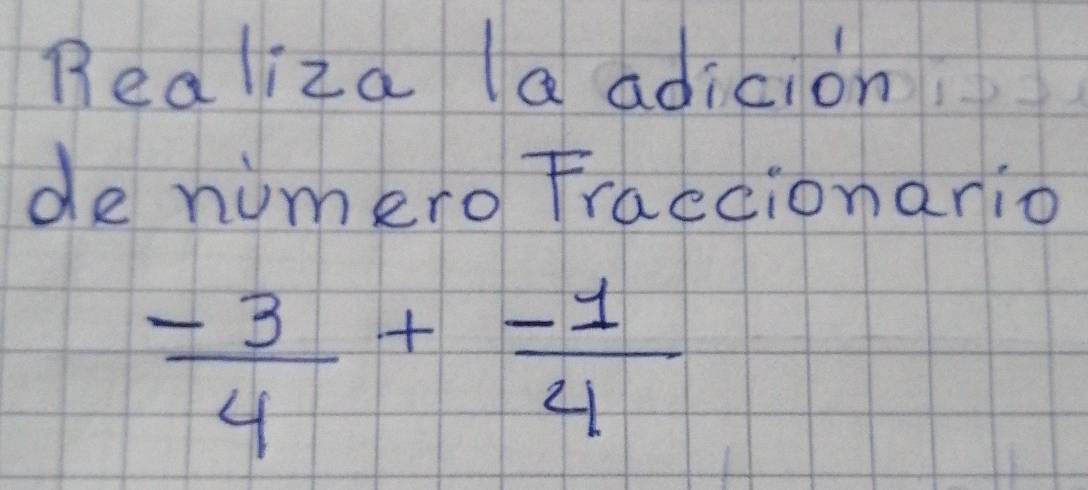 Realiza la adición
de número Fraccionario
-3/4 + -1/4